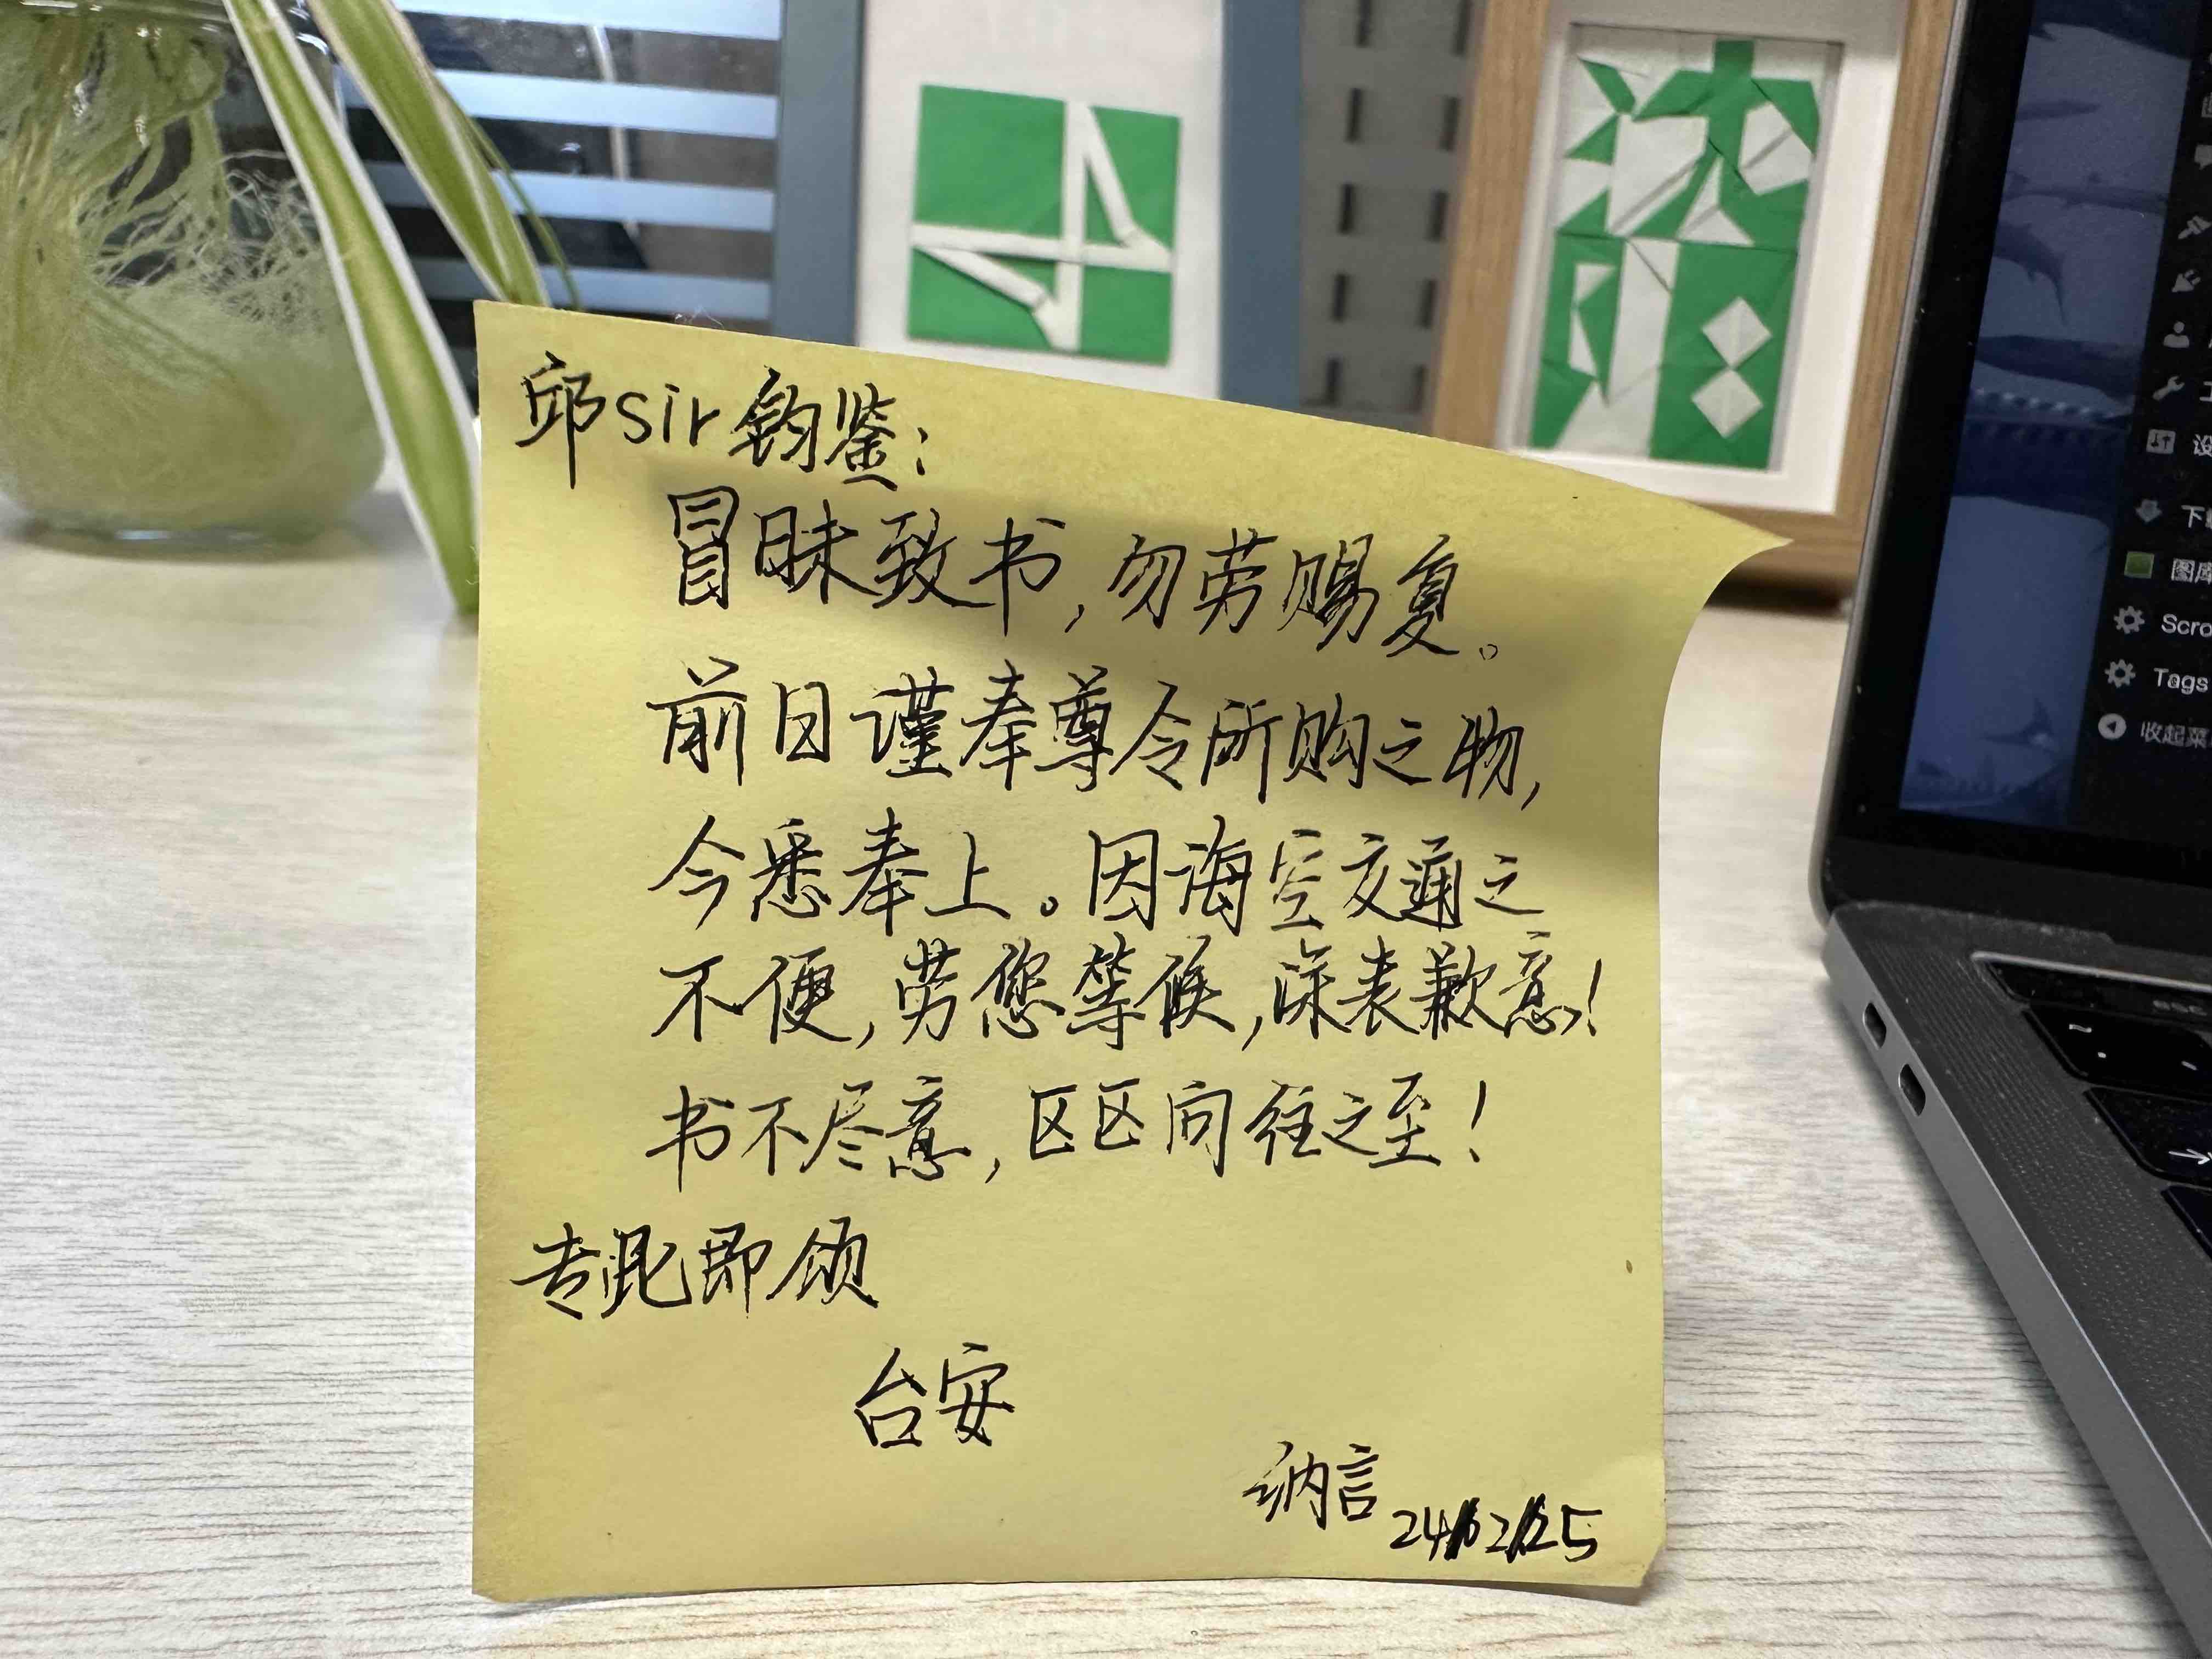 邱sir钧鉴：
冒昧致书，勿劳赐复。
前日谨奉尊令所购之物，
今悉奉上。因海空交通之
不便，劳您等候，深表歉意！
书不尽意，区区向往之至！
专此即颂
台安
纳言 24/02/25
esc
下
图库
Scro
Tags
收起菜
设